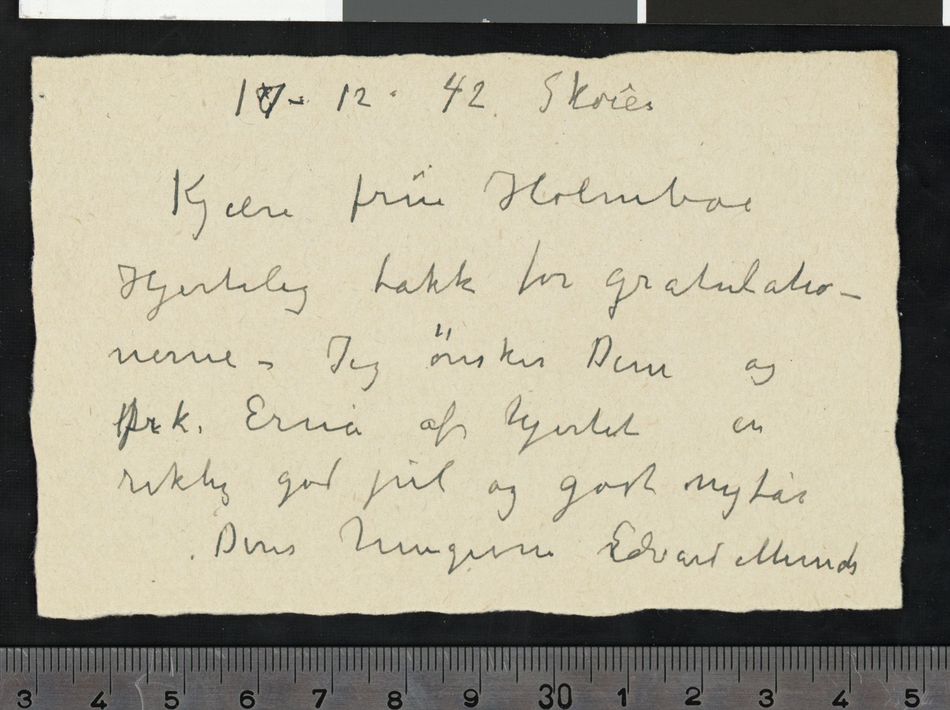 17-12-42 Skøien
Kjære frue Holmboe
Hjertelig takk for gratulatio-
nerne - Jeg önsker Dem og
frk. Erna af hjertet en
riktig god jul og godt nytår
Deres hengivne Edvard Munch
3 4 5 6 7 8 9 30 1 2 3 4 5